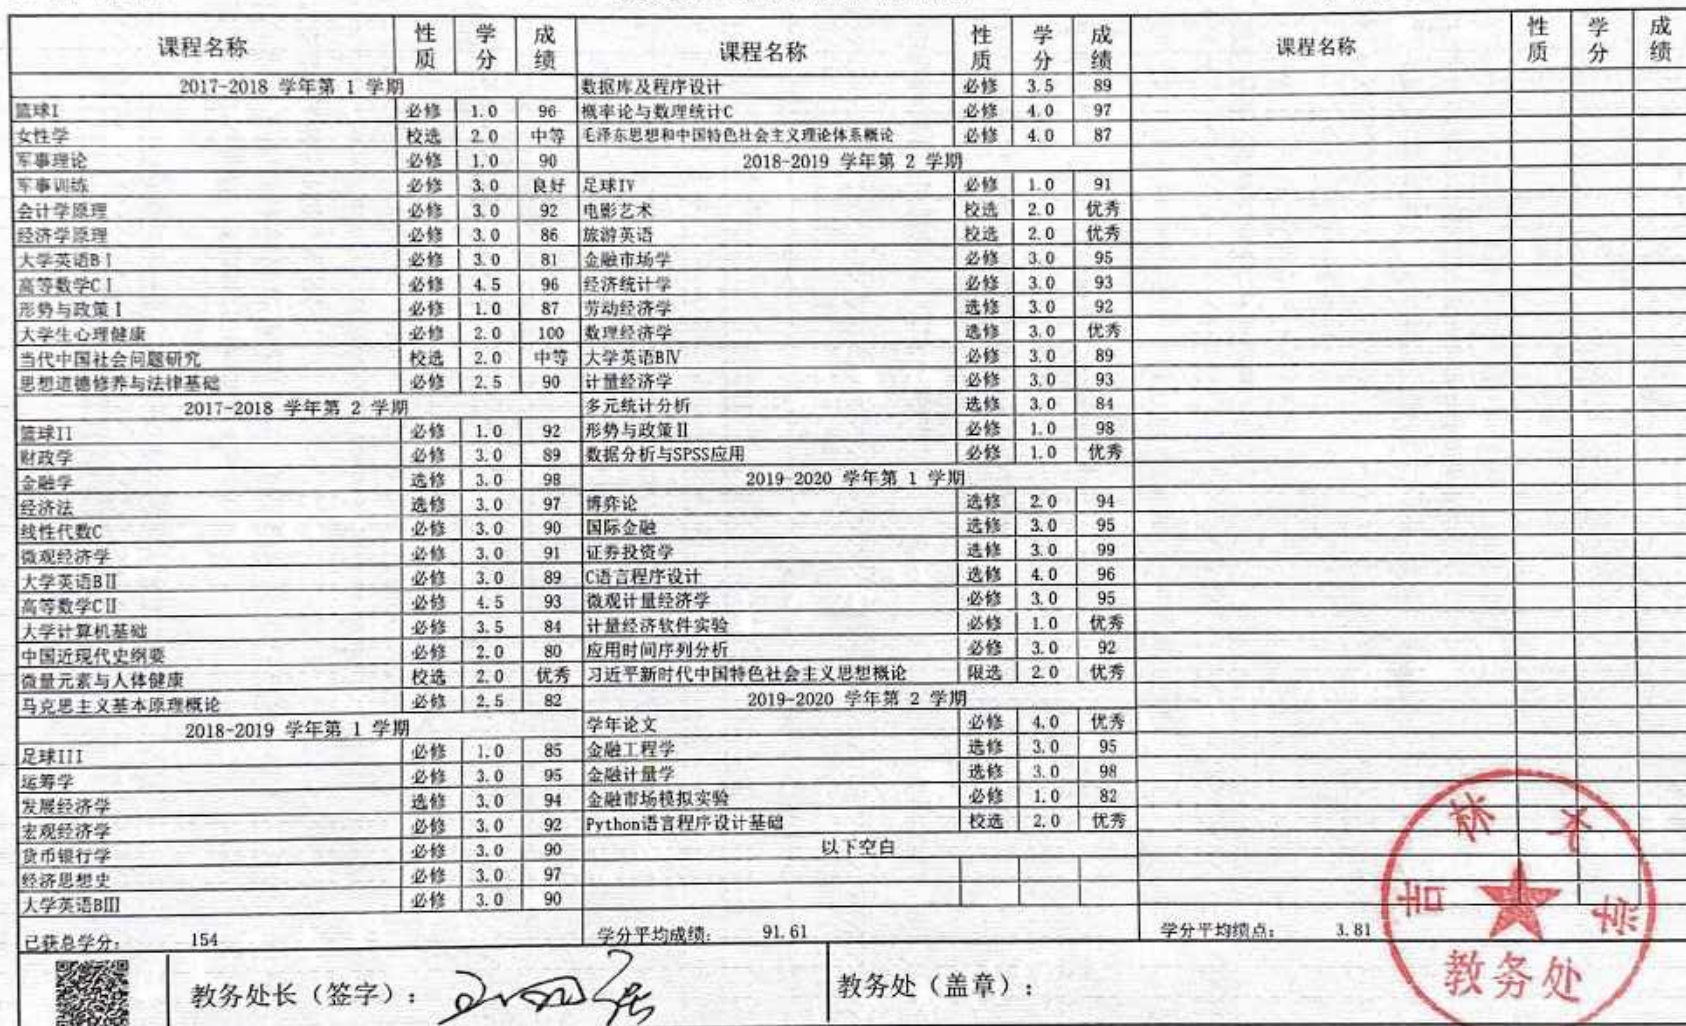 课程名称 性质 学分 成绩
2017-2018 学年第 1 学期
篮球I 必修 1.0 96
女性学 校选 2.0 中等
军事理论 必修 1.0 90
军事训练 必修 3.0 良好
会计学原理 必修 3.0 92
经济学原理 必修 3.0 86
大学英语BⅠ 必修 3.0 81
高等数学CⅠ 必修 4.5 96
形势与政策Ⅰ 必修 1.0 87
大学生心理健康 必修 2.0 100
当代中国社会问题研究 校选 2.0 中等
思想道德修养与法律基础 必修 2.5 90
2017-2018 学年第 2 学期
篮球II 必修 1.0 92
财政学 必修 3.0 89
金融学 选修 3.0 98
经济法 选修 3.0 97
线性代数C 必修 3.0 90
微观经济学 必修 3.0 91
大学英语BⅡ 必修 3.0 89
高等数学CⅡ 必修 4.5 93
大学计算机基础 必修 3.5 84
中国近现代史纲要 必修 2.0 80
微量元素与人体健康 校选 2.0 优秀
马克思主义基本原理概论 必修 2.5 82
2018-2019 学年第 1 学期
足球III 必修 1.0 85
运筹学 必修 3.0 95
发展经济学 选修 3.0 94
宏观经济学 必修 3.0 92
货币银行学 必修 3.0 90
经济思想史 必修 3.0 97
大学英语BⅢ 必修 3.0 90
课程名称 性质 学分 成绩
数据库及程序设计 必修 3.5 89
概率论与数理统计C 必修 4.0 97
毛泽东思想和中国特色社会主义理论体系概论 必修 4.0 87
2018-2019 学年第 2 学期
足球IV 必修 1.0 91
电影艺术 校选 2.0 优秀
旅游英语 校选 2.0 优秀
金融市场学 必修 3.0 95
经济统计学 必修 3.0 93
劳动经济学 选修 3.0 92
数理经济学 选修 3.0 优秀
大学英语BⅣ 必修 3.0 89
计量经济学 必修 3.0 93
多元统计分析 选修 3.0 84
形势与政策Ⅱ 必修 1.0 98
数据分析与SPSS应用 必修 1.0 优秀
2019-2020 学年第 1 学期
博弈论 选修 2.0 94
国际金融 选修 3.0 95
证券投资学 选修 3.0 99
C语言程序设计 选修 4.0 96
微观计量经济学 必修 3.0 95
计量经济软件实验 必修 1.0 优秀
应用时间序列分析 必修 3.0 92
习近平新时代中国特色社会主义思想概论 限选 2.0 优秀
2019-2020 学年第 2 学期
学年论文 必修 4.0 优秀
金融工程学 选修 3.0 95
金融计量学 选修 3.0 98
金融市场模拟实验 必修 1.0 82
Python语言程序设计基础 校选 2.0 优秀
以下空白
课程名称 性质 学分 成绩
已获总学分: 154 学分平均成绩: 91.61 学分平均绩点: 3.81
教务处长（签字）: 教务处（盖章）:
吉林大学
教务处